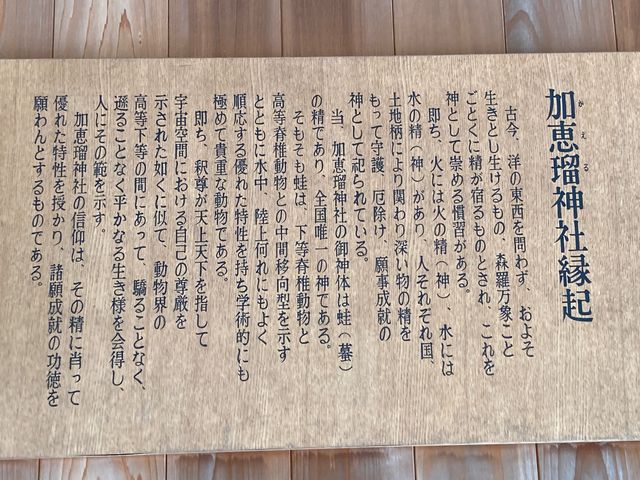 加恵瑠神社縁起
かえる
古今、洋の東西を問わず、およそ
生きとし生けるもの 森羅万象こと
ごとくに精が宿るものとされ、これを
神として崇める慣習がある。
即ち、火には火の精(神)、水には
水の精(神)があり、人それぞれ国、
土地柄により関わり深い物の精を
もって守護、厄除け、願事成就の
神として祀られている。
当、加恵瑠神社の御神体は蛙(蟇)
の精であり、全国唯一の神である。
そもそも蛙は、下等脊椎動物と
高等脊椎動物との中間移向型を示す
とともに水中、陸上何れにもよく
順応する優れた特性を持ち学術的にも
極めて貴重な動物である。
即ち、釈尊が天上天下を指して
宇宙空間における自己の尊厳を
示された如くに似て、動物界の
高等下等の間にあって、驕ることなく、
遜ることなく平かなる生き様を会得し、
人にその範を示す。
加恵瑠神社の信仰は、その精に肖って
優れた特性を授かり、諸願成就の功徳を
願わんとするものである。